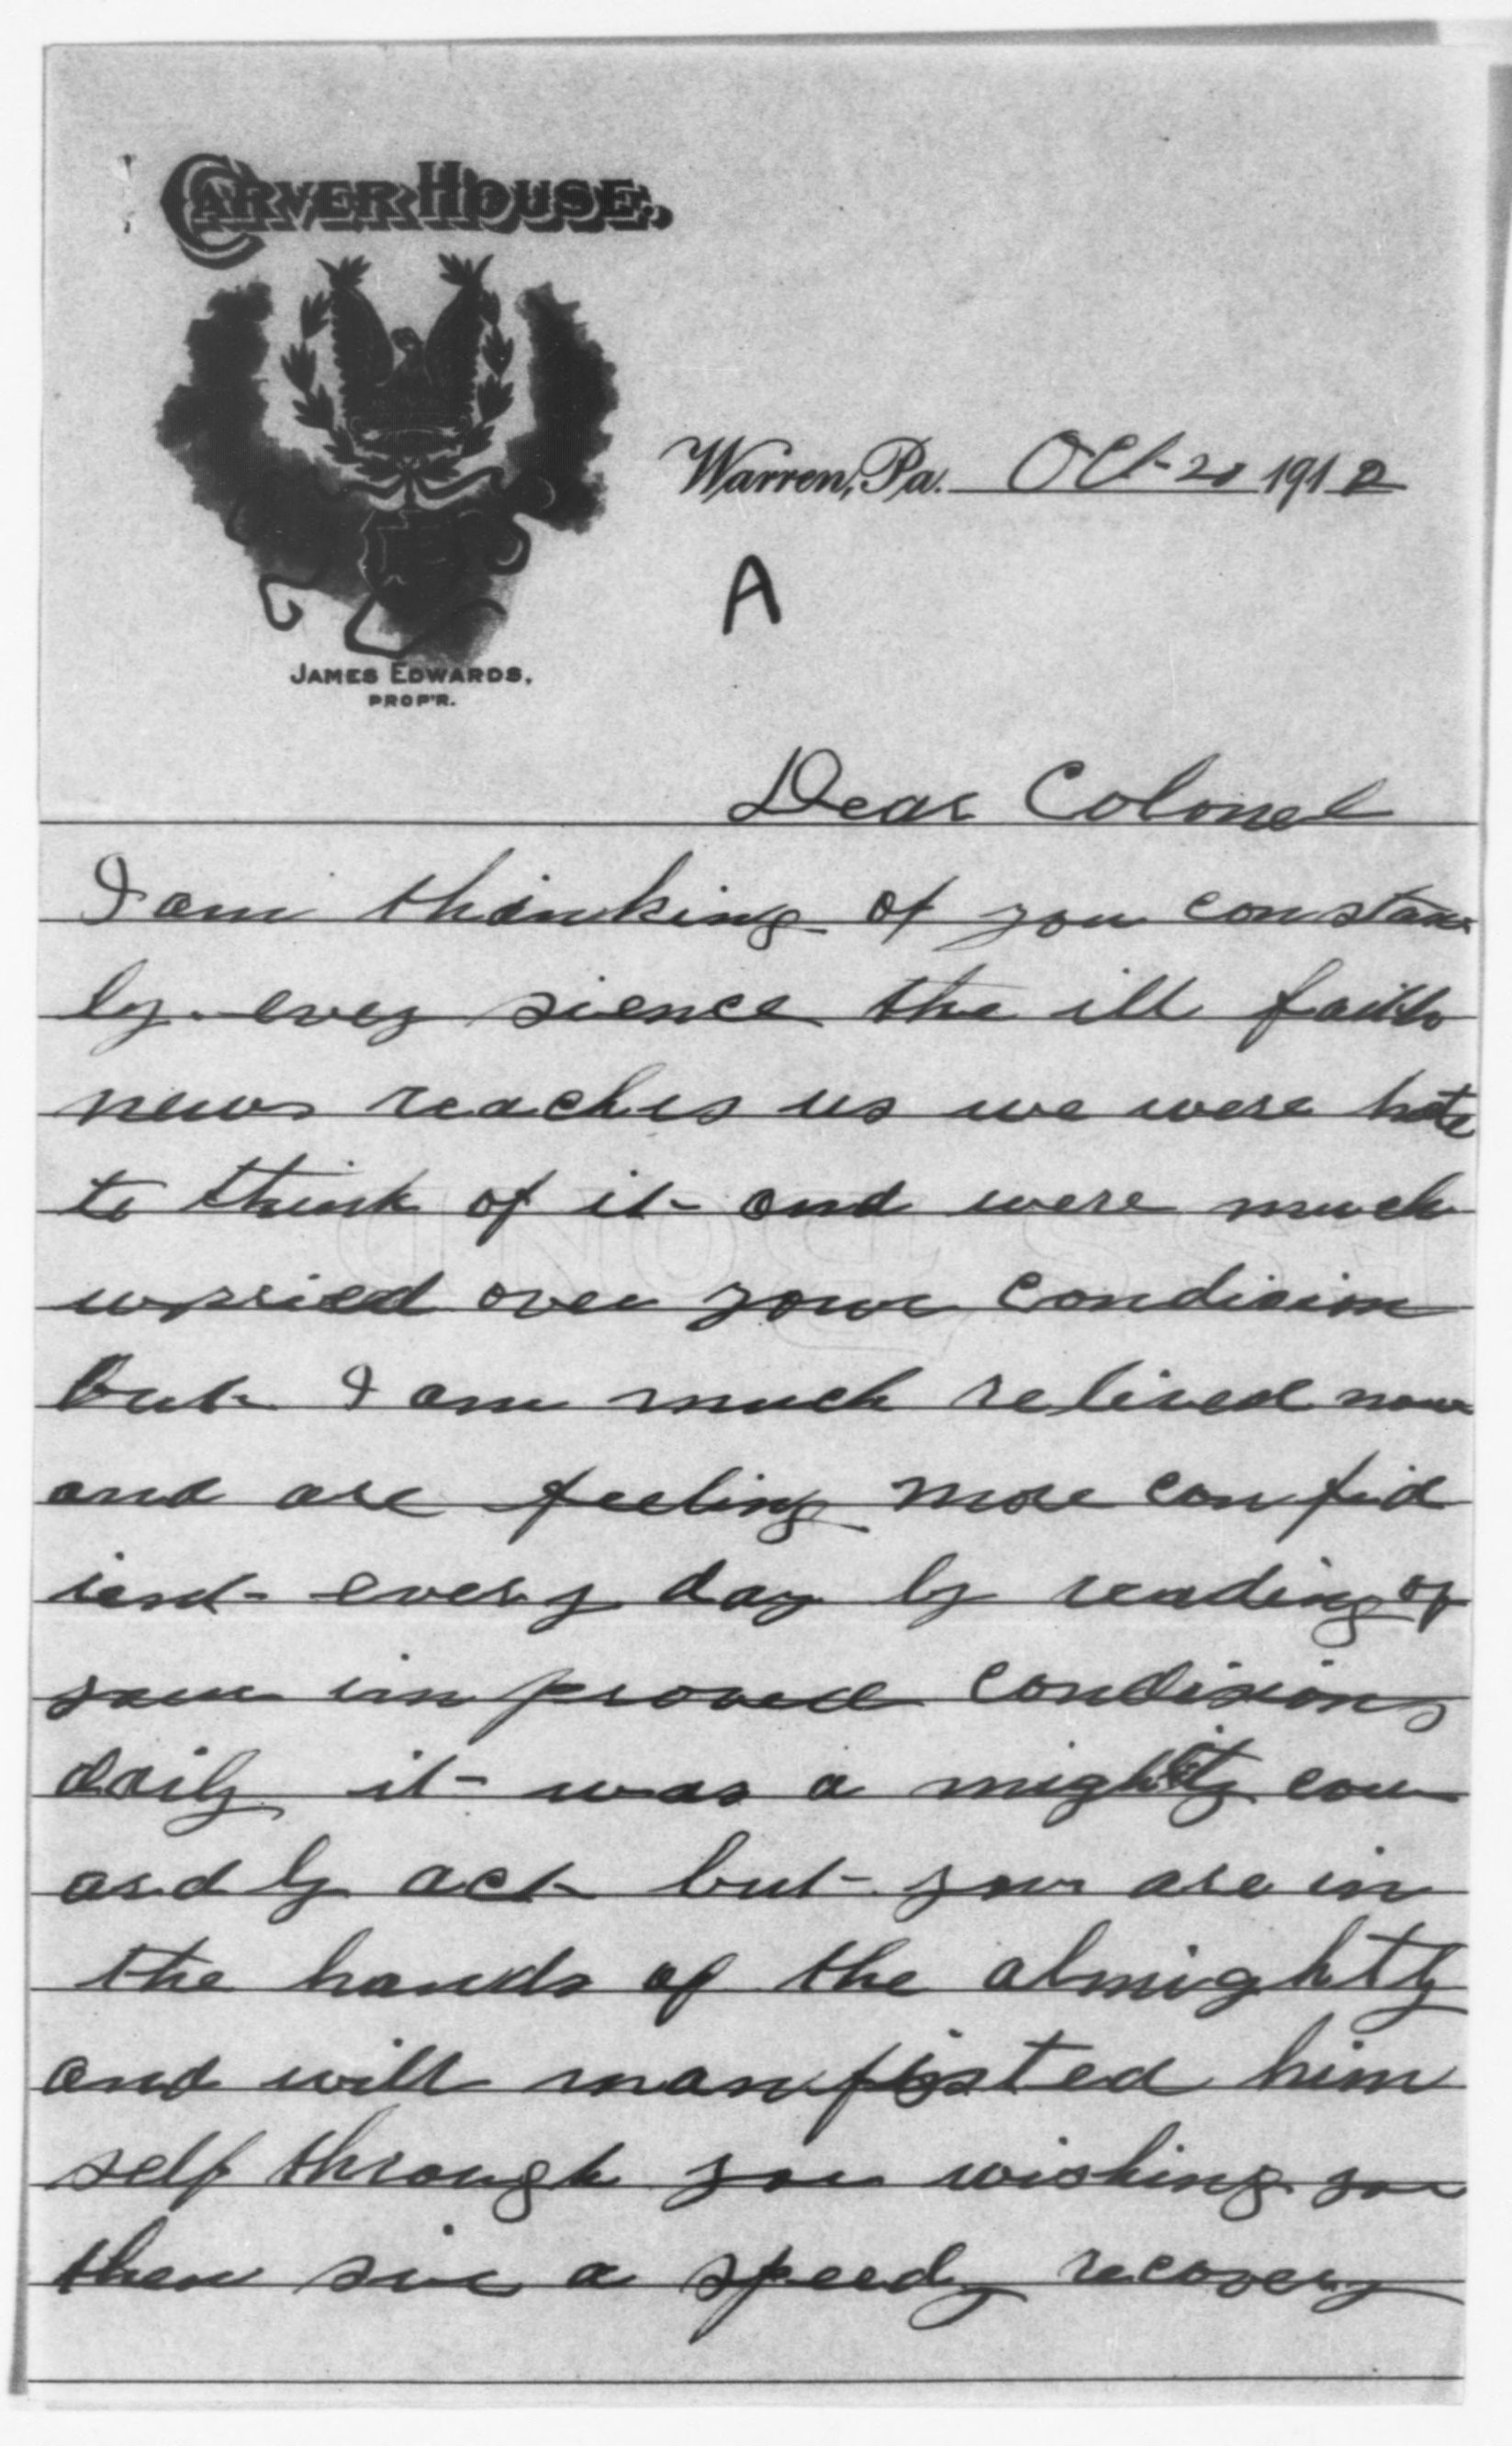 CARVER HOUSE,
Warren, Pa. Oct 20 1912
A
JAMES EDWARDS,
PROP'R.
Dear Colonel
I am thinking of you constan
ly. ever sience the ill
news reaches us we were
to think of it and were much
worried over your condision
but I am much relived now
and are feeling more confid
ient every day by reading of
your improved condisions
daily it was a mighty cow
ardly act but you are in
the hands of the almighty
and will manfisted him
self through you wishing you
then sir a speedy recovery
BOND